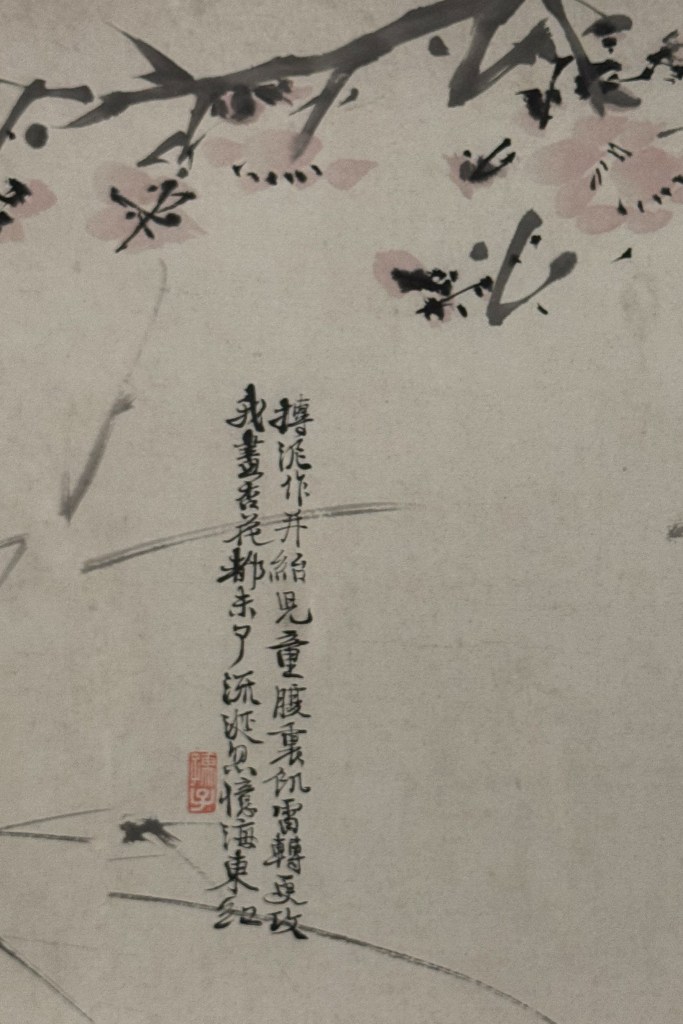 摶泥作并紿兒童腹裏飢雷轉更攻
我畫杏花都未了流涎忽憶海東紅